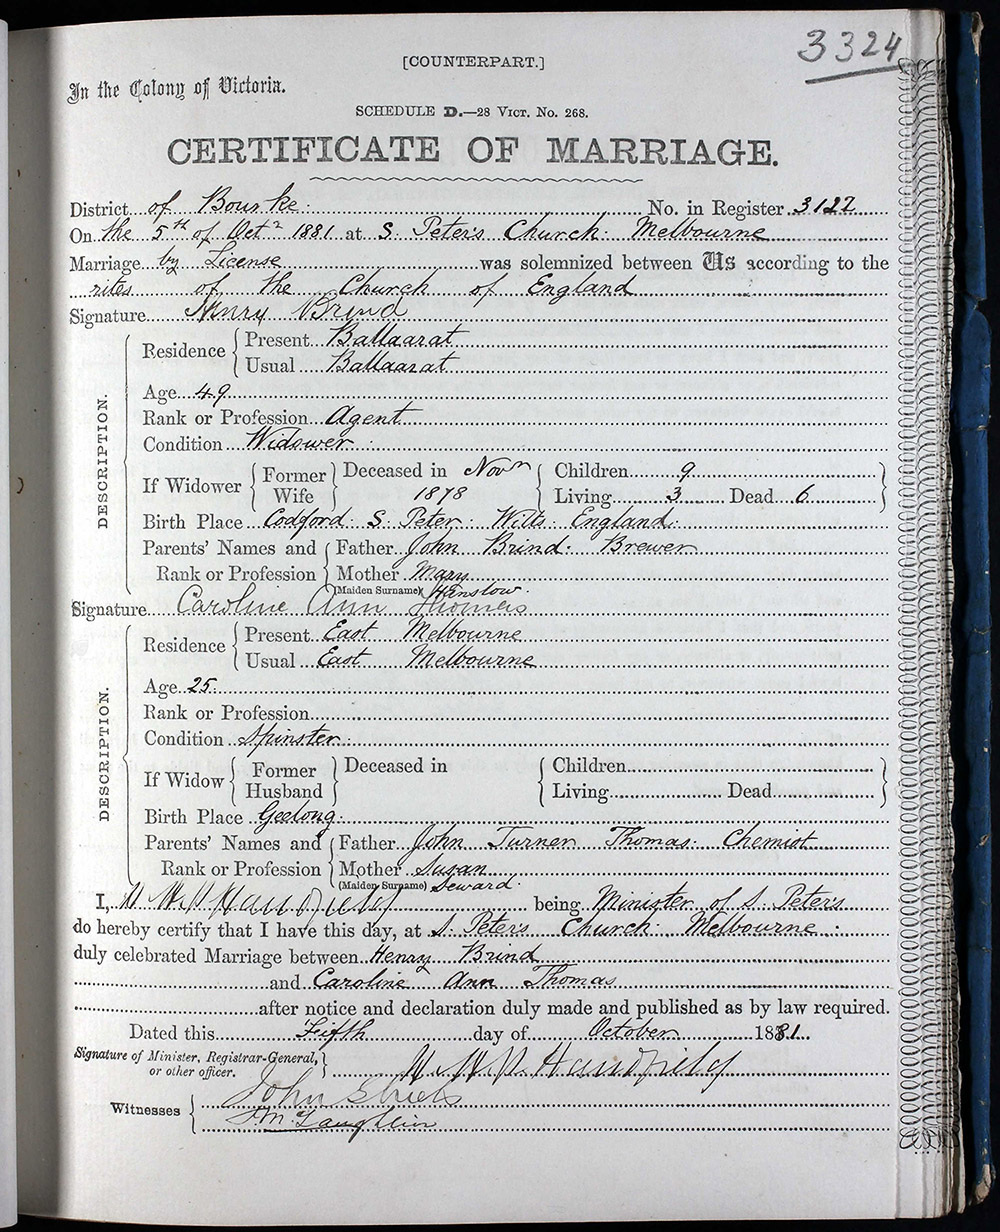 3324
[COUNTERPART.]
In the Colony of Victoria.
SCHEDULE D.—28 VICT. No. 268.
CERTIFICATE OF MARRIAGE.
District of Bourke. No. in Register 3122
On the 5th of Octr 1881 at S. Peter's Church. Melbourne
Marriage by License was solemnized between Us according to the
rites of the Church of England
Signature Henry Brind
DESCRIPTION.
Residence Present Ballaarat
Usual Ballaarat
Age 49
Rank or Profession Agent
Condition Widower
If Widower Former Wife Deceased in Novr 1878 Children 9
Living 3 Dead 6
Birth Place Codford S. Peter. Wilts. England.
Parents' Names and Father John Brind. Brewer
Rank or Profession Mother Mary
(Maiden Surname) Hinstow.
Signature Caroline Ann Thomas
DESCRIPTION.
Residence Present East Melbourne
Usual East Melbourne
Age 25.
Rank or Profession
Condition Spinster.
If Widow Former Husband Deceased in Children
Living Dead
Birth Place Geelong.
Parents' Names and Father John Turner Thomas. Chemist
Rank or Profession Mother Susan
(Maiden Surname) Seward.
I, Handfield being Minister of S. Peter's
do hereby certify that I have this day, at S. Peter's Church. Melbourne.
duly celebrated Marriage between Henry Brind
and Caroline Ann Thomas
after notice and declaration duly made and published as by law required.
Dated this Fifth day of October 1881.
Signature of Minister, Registrar-General,
or other officer. Handfield
Witnesses John
McLaughlin